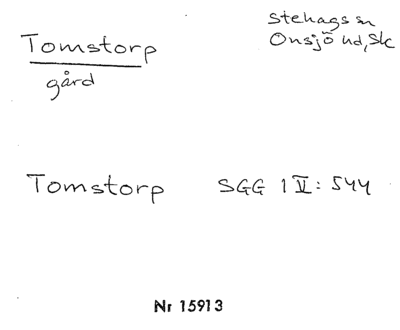 Tomstorp
gård
Stehags sn
Onsjö hd, Sk
Tomstorp SGG IV: 544
Nr 15913